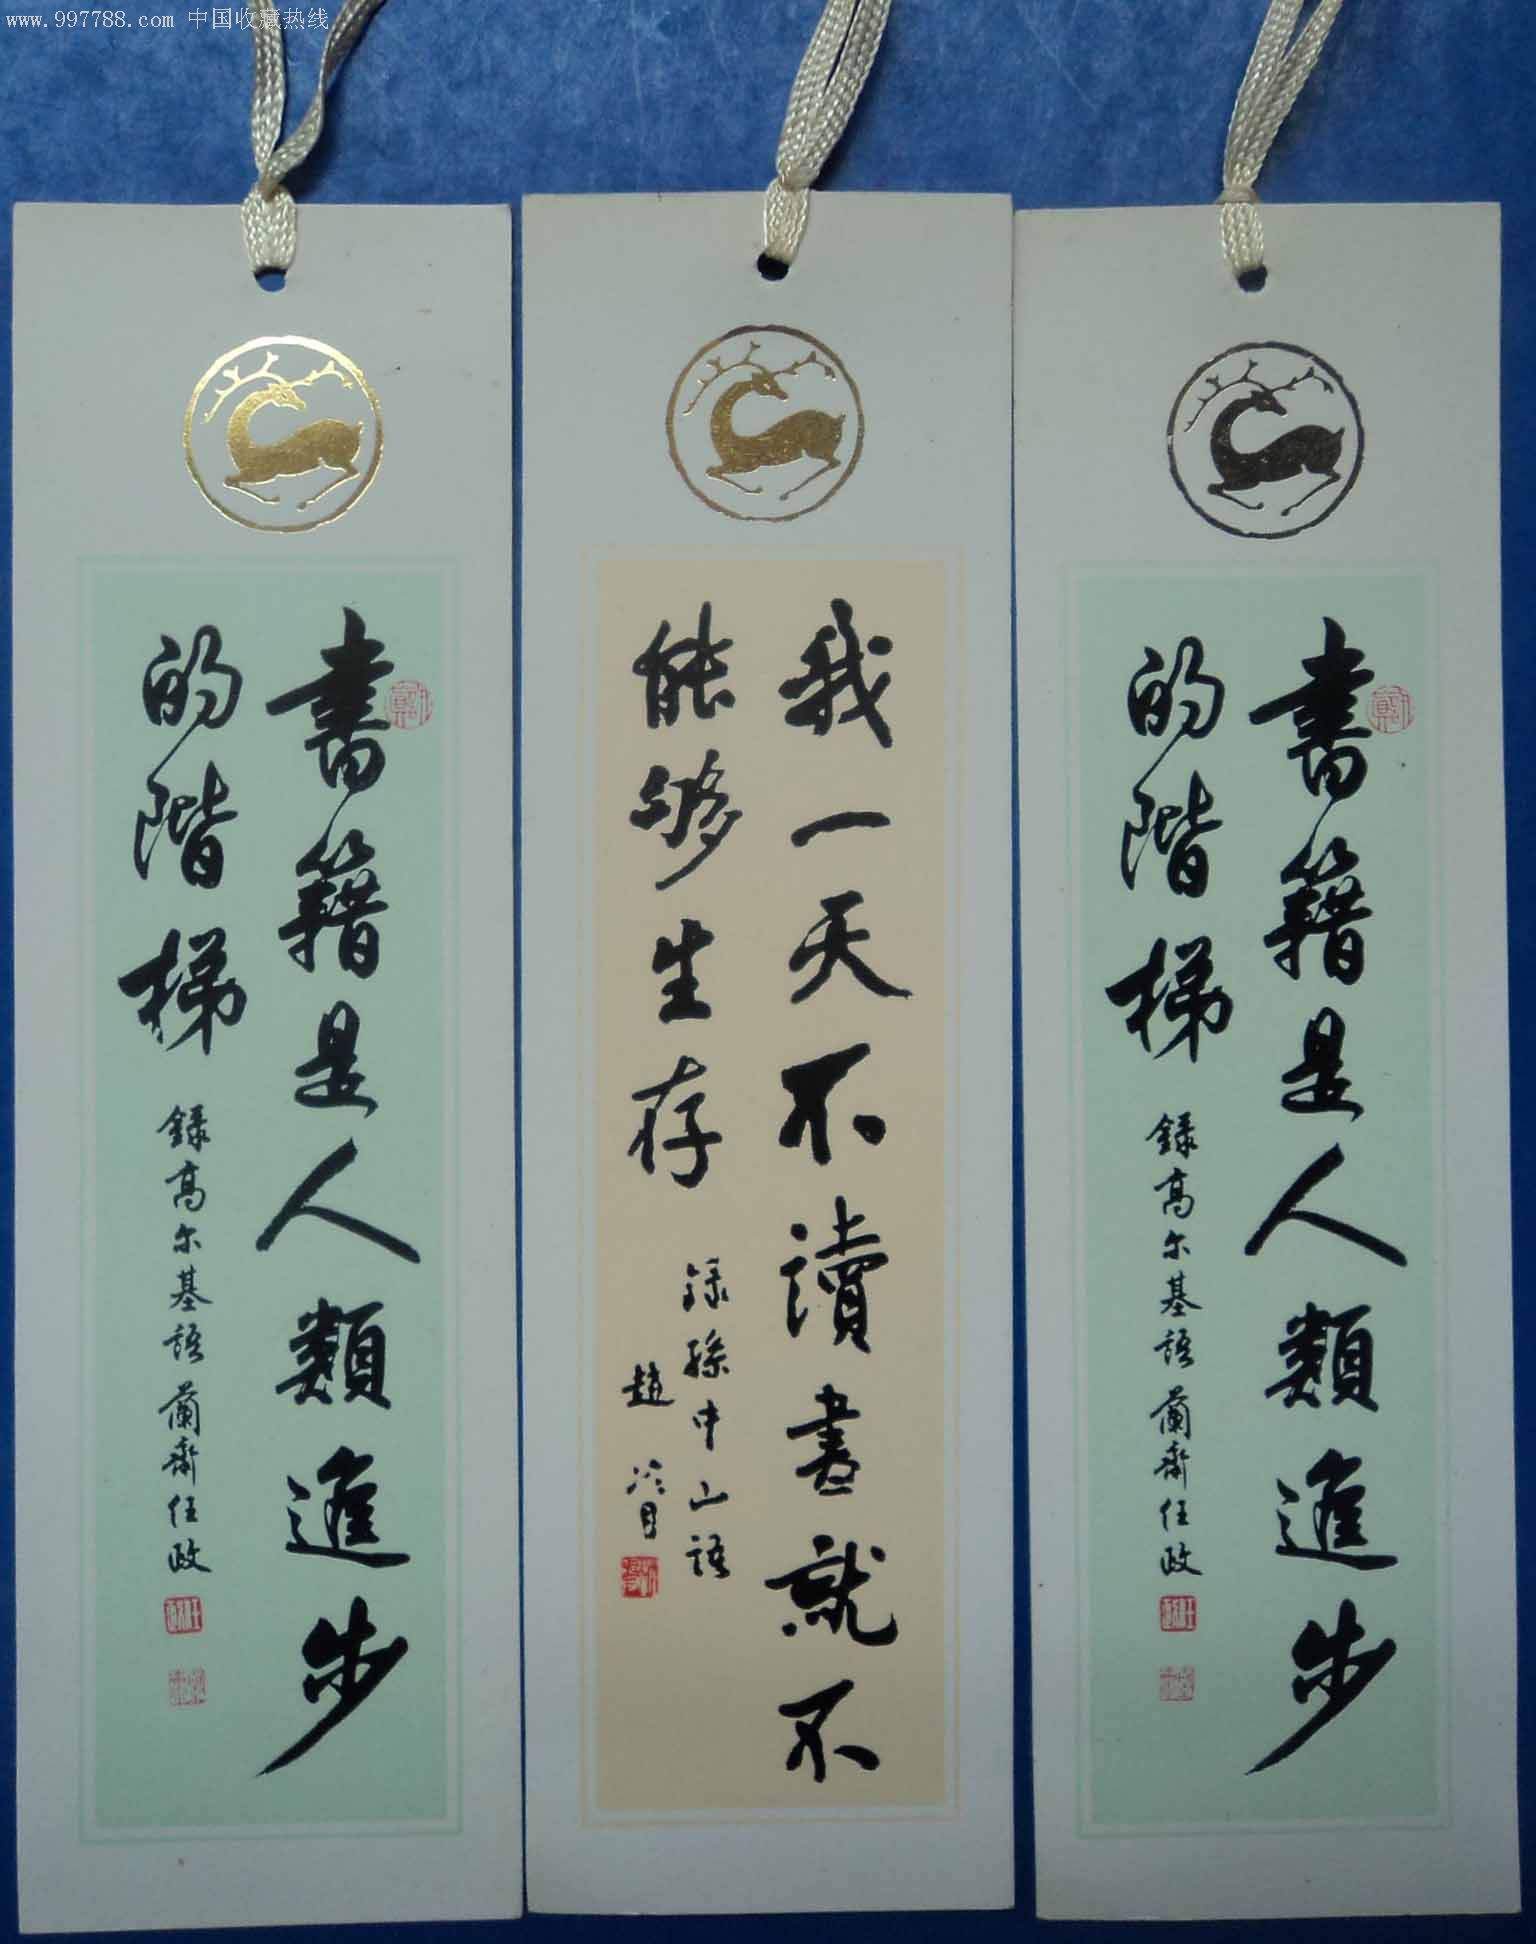 www.997788.com 中国收藏热线
書籍是人類進步
的階梯
錄高尔基語 蘭齋任政
我一天不讀書就不
能够生存
錄孫中山語
趙冷月
書籍是人類進步
的階梯
錄高尔基語 蘭齋任政